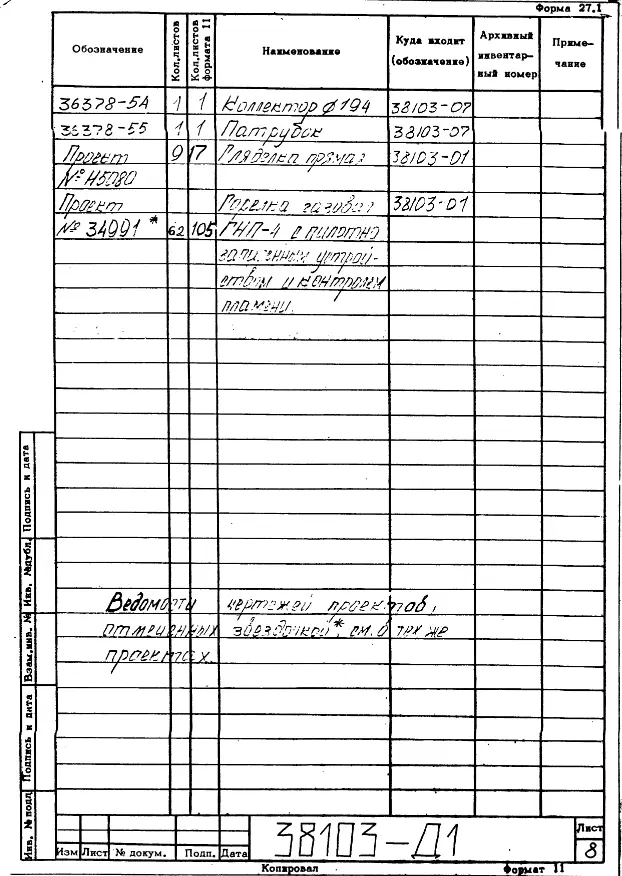 Форма 27.1
Обозначение Кол.листов Кол.листов формата 11 Наименование Куда входит (обозначение) Архивный инвентарный номер Приме-чание
36378-5А 1 1 Коллектор ф194 38103-07
36378-55 1 1 Патрубок 38103-07
Проект 9 17 Гляделка прямая 38103-01
№ Н5080
Проект Горелка газовая 38103-01
№ 34991 * 62 105 ГНП-4 с пилотно
запальным устрой-
ством и контролем
пламени.
Ведомости чертежей проектов,
отмеченных звездочкой*, см. в тех же
проектах.
Подпись и дата
Инв. №дубл.
Взам.инв. №
Подпись и дата
Инв. №подл
Изм Лист № докум. Подп. Дата
38103-Д1
Лист
8
Копировал Формат 11